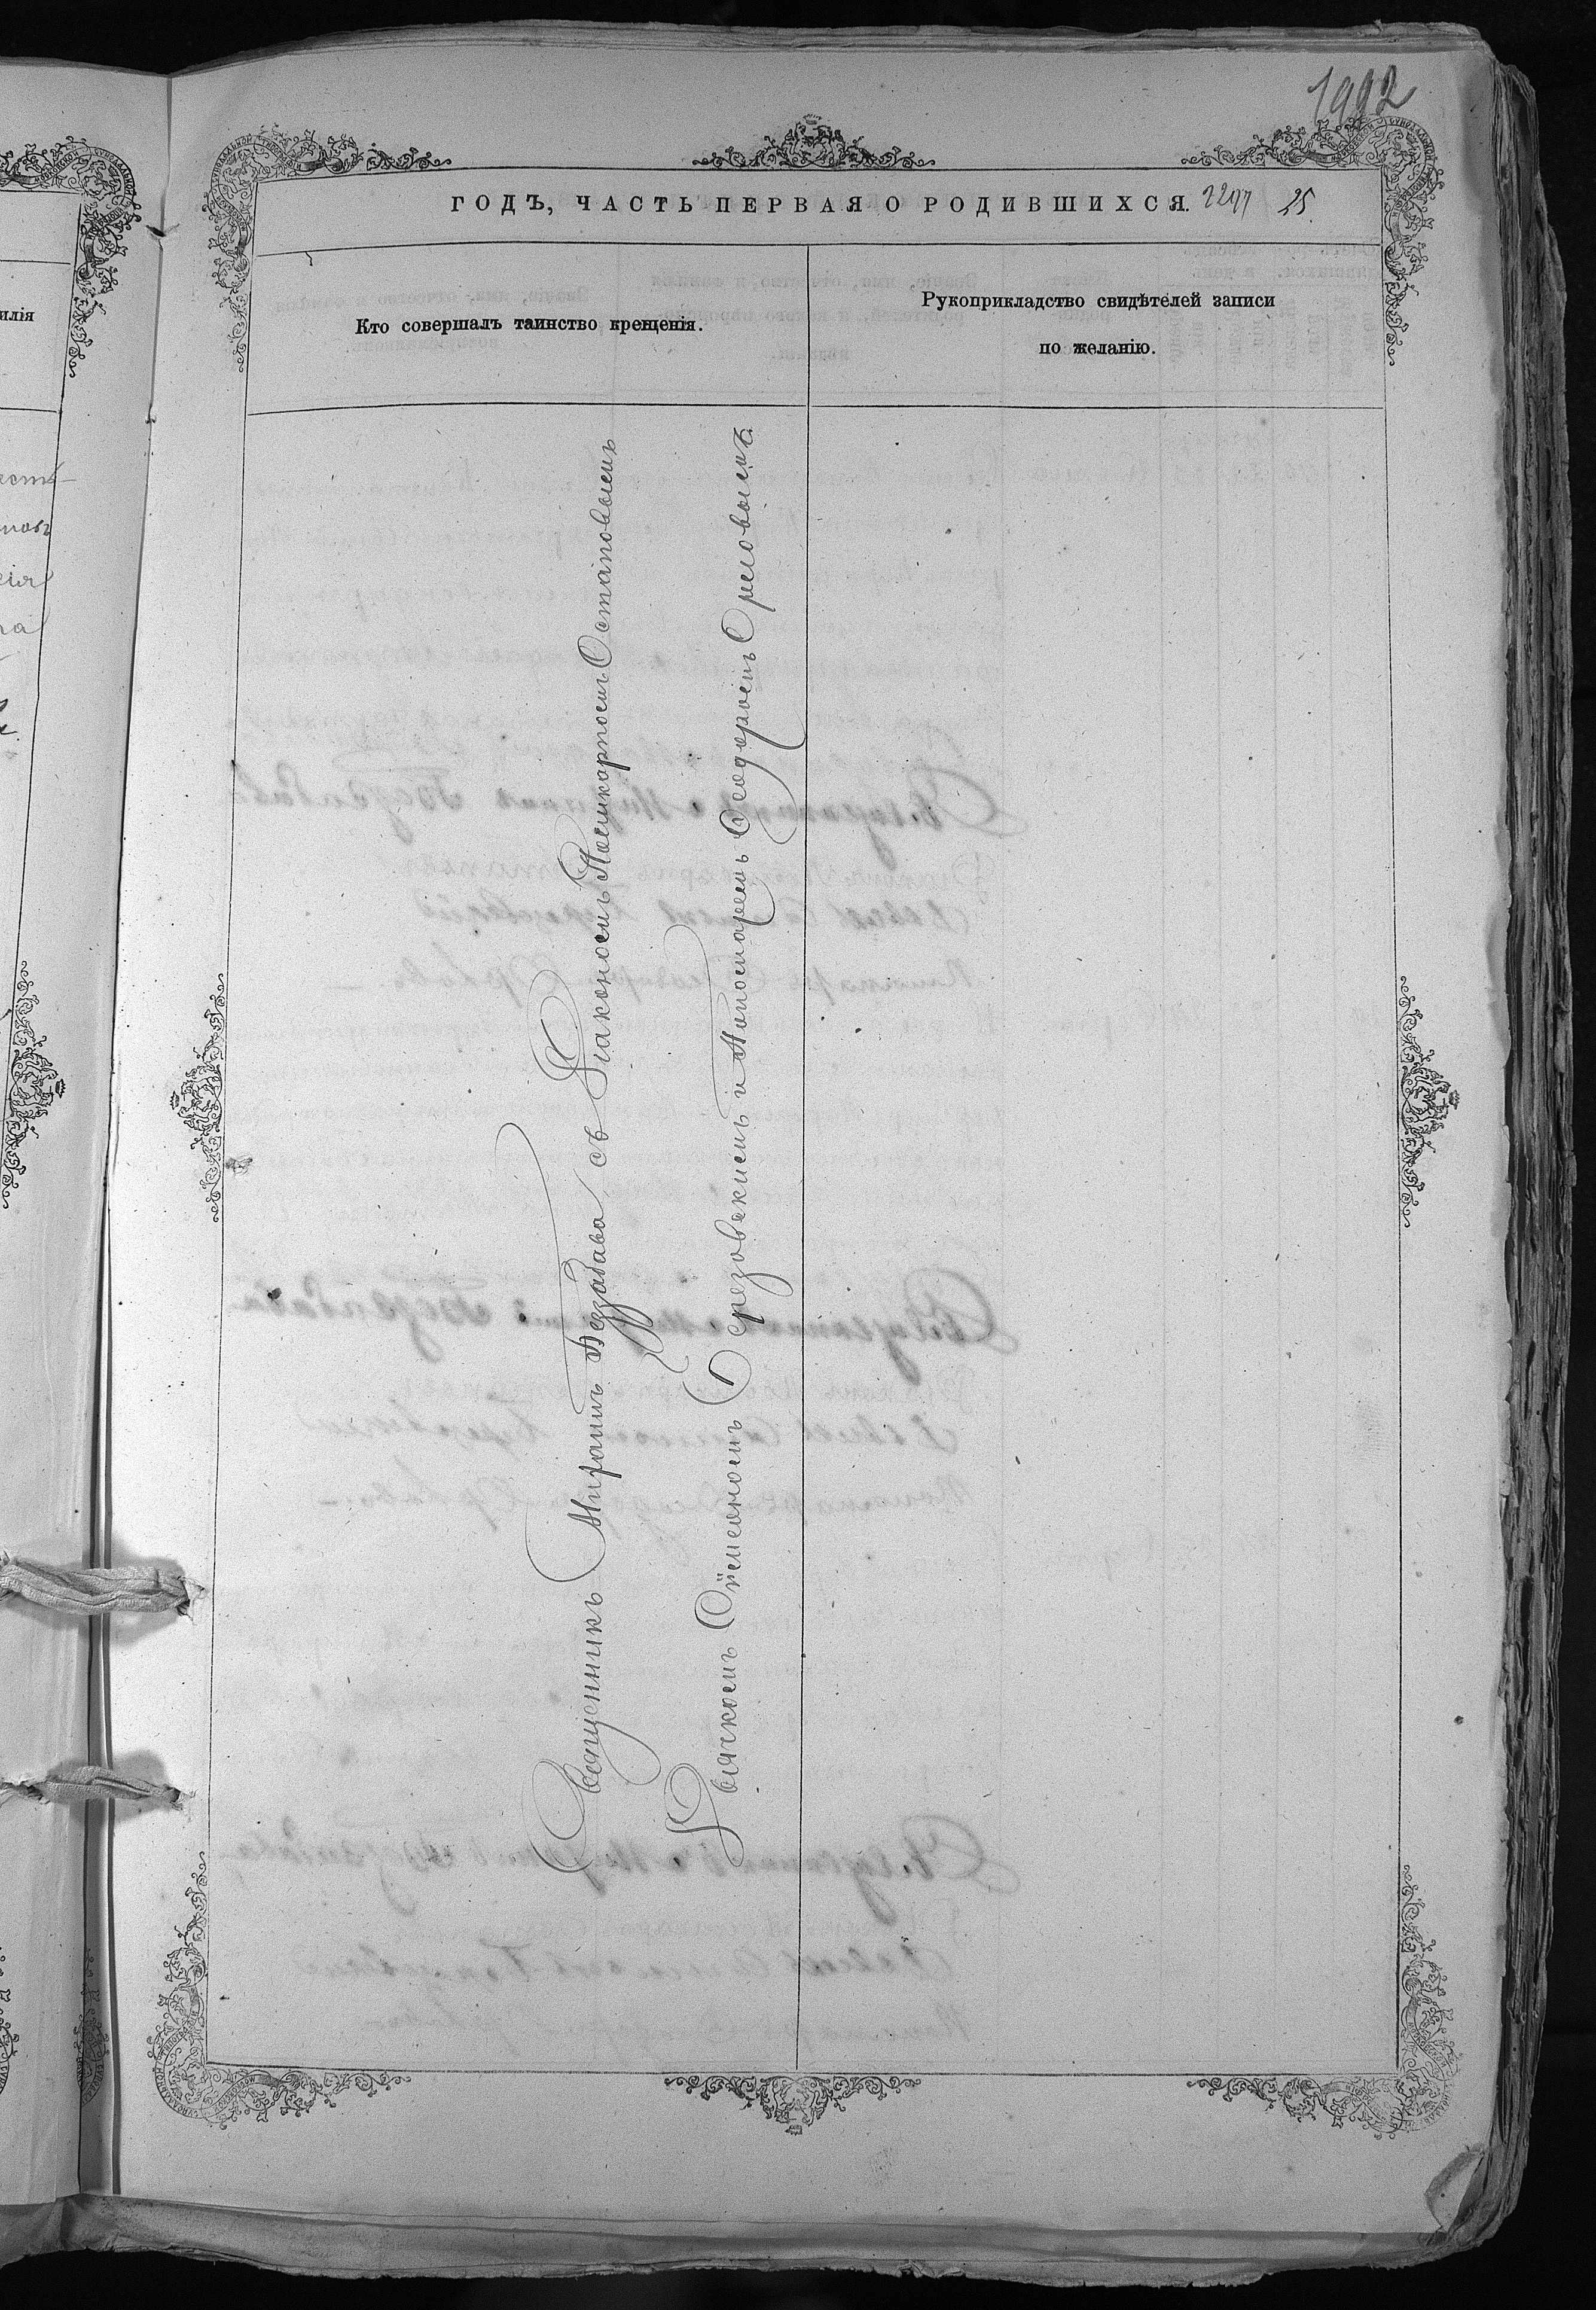 1992
ГОДЪ, ЧАСТЬ ПЕРВАЯ О РОДИВШИХСЯ. 25.
Кто совершалъ таинство крещенія.
Рукоприкладство свидѣтелей записи
по желанію.
Священникъ Миронъ Беззабава съ Діакономъ Поликарпомъ Остаповымъ
Дьячкомъ Сѵмеономъ Березовскимъ и Пономаремъ Ѳеодоромъ Орловымъ.
илія